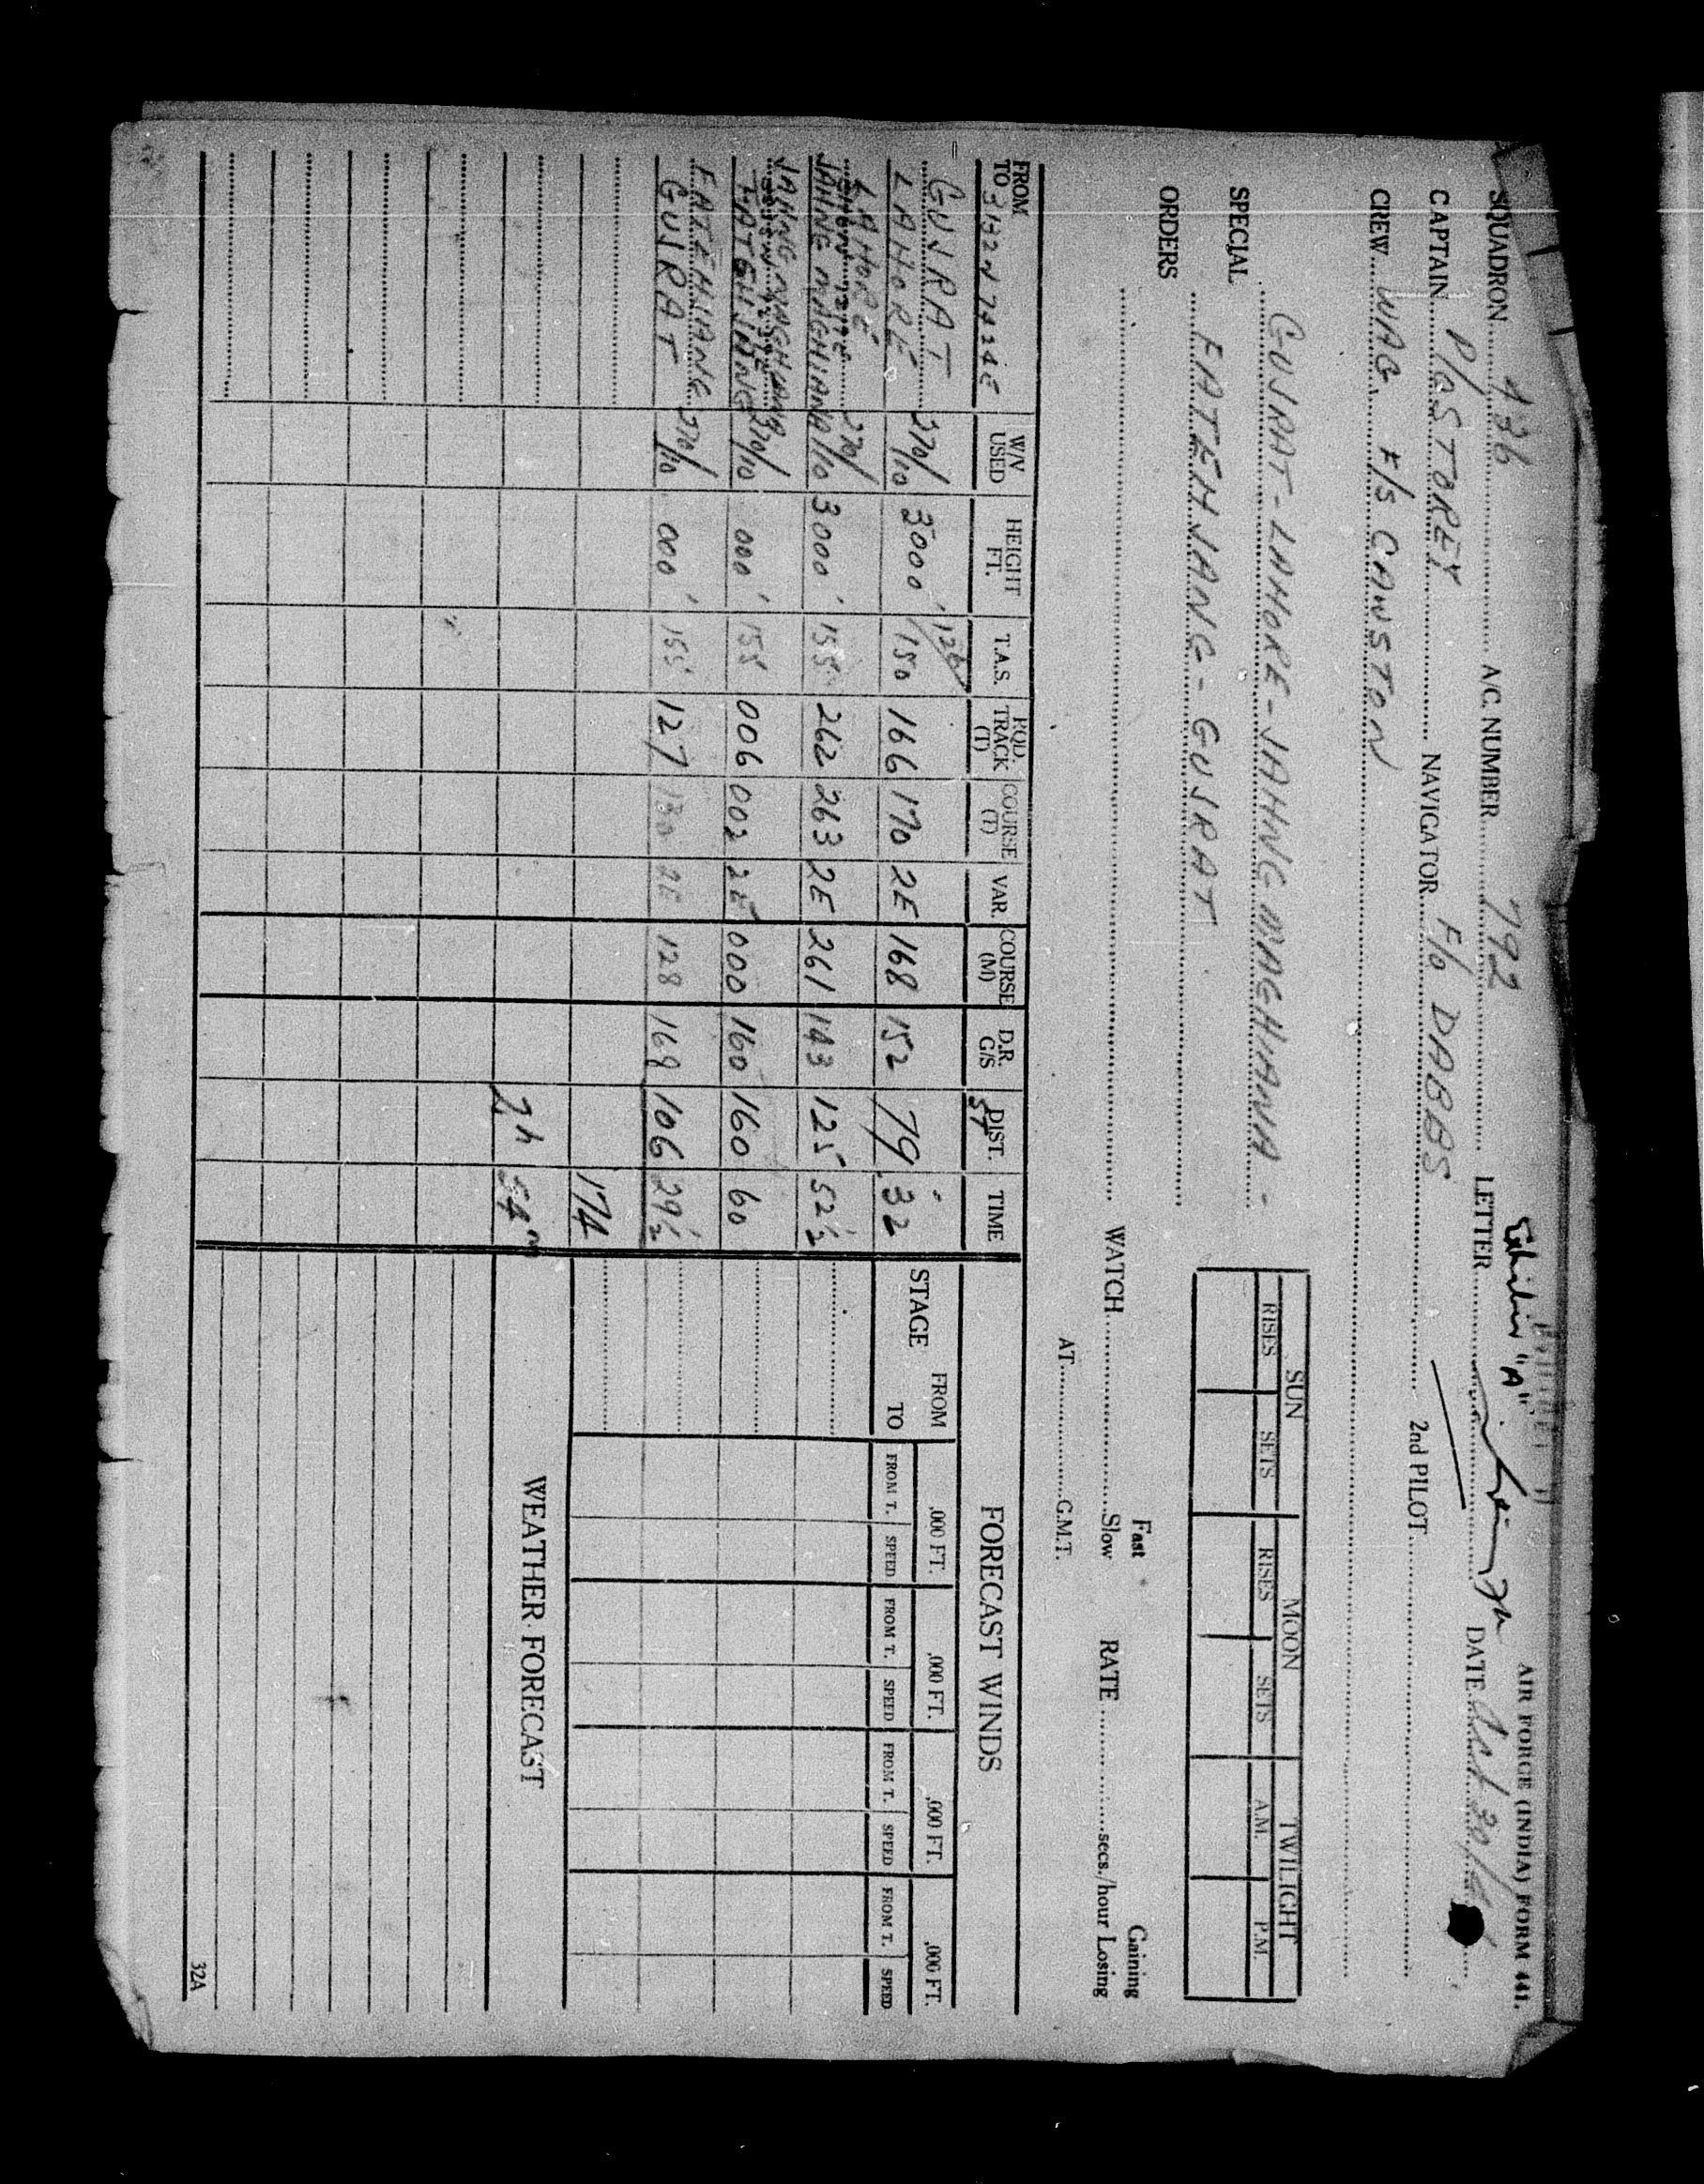 AIR FORCE (INDIA) FORM 441.
Exhibit "A"
SQUADRON 436 A/C. NUMBER 792 LETTER DATE Oct 30/44
CAPTAIN P/O STOREY NAVIGATOR F/O DABBS 2nd PILOT
CREW WAG F/S CAWSTON
SPECIAL GUJRAT - LAHORE - JAHNG MAGHIANA -
ORDERS FATEHJANG - GUJRAT
SUN MOON TWILIGHT
RISES SETS RISES SETS A.M. P.M.
WATCH Fast Slow RATE secs./hour Gaining Losing
AT G.M.T.
FROM TO 3142N 7424E W/V USED HEIGHT FT. T.A.S. RQD. TRACK (T) COURSE (T) VAR. COURSE (M) D.R. G/S DIST. ST TIME
GUJRAT 270/ 126
LAHORE 10 3000' 150 166 170 2E 168 152 79 32
LAHORE 270/
JAHNG MAGHIANA /10 3000' 155 262 263 2E 261 143 125 52½
JAHNG MAGHIANA
FATEHJANG 270/10 000' 155 006 002 2E 000 160 160 60
FATEHJANG
GUJRAT 270/10 000' 155 127 130 2E 128 169 106 29½
174
2h 54m
FORECAST WINDS
STAGE FROM TO ,000 FT. ,000 FT. ,000 FT. ,000 FT.
FROM T. SPEED FROM T. SPEED FROM T. SPEED FROM T. SPEED
WEATHER FORECAST
32A